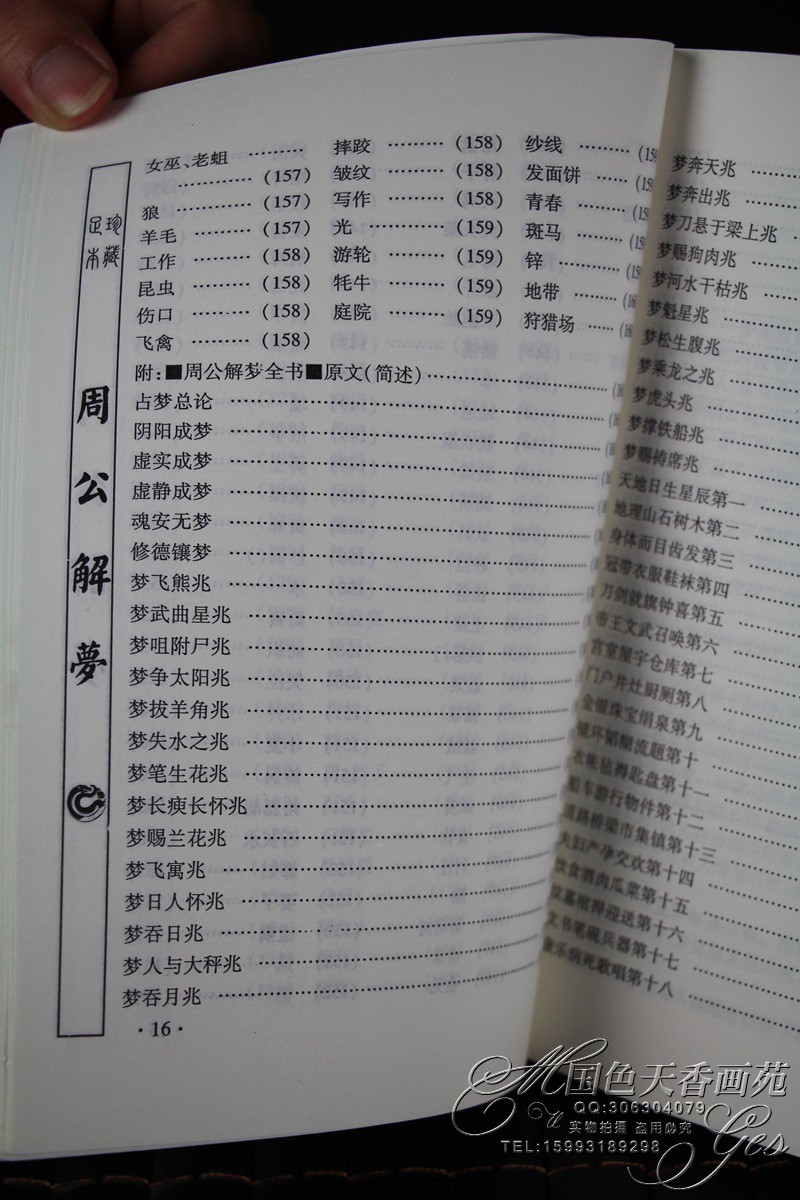 珍藏
足本
周公解夢
女巫、老蛆 ………
……………… (157)
狼 ……………… (157)
羊毛 …………… (157)
工作 …………… (158)
昆虫 …………… (158)
伤口 …………… (158)
飞禽 …………… (158)
摔跤 ……… (158)
皱纹 ……… (158)
写作 ……… (158)
光 ………… (159)
游轮 ……… (159)
牦牛 ……… (159)
庭院 ……… (159)
纱线 ………
发面饼 ……
青春 ………
斑马 ………
锌 …………
地带 ………
狩猎场 ……
附:■周公解梦全书■原文(简述)……………………
占梦总论 ……………………
阴阳成梦 ……………………
虚实成梦 ……………………
虚静成梦 ……………………
魂安无梦 ……………………
修德镶梦 ……………………
梦飞熊兆 ……………………
梦武曲星兆 ……………………
梦咀附尸兆 ……………………
梦争太阳兆 ……………………
梦拔羊角兆 ……………………
梦失水之兆 ……………………
梦笔生花兆 ……………………
梦长瘐长怀兆 ……………………
梦赐兰花兆 ……………………
梦飞寓兆 ……………………
梦日人怀兆 ……………………
梦吞日兆 ……………………
梦人与大秤兆 ……………………
梦吞月兆 ……………………
·16·
梦奔天兆 ………
梦奔出兆 ………
梦刀悬于梁上兆 ……
梦赐狗肉兆 ………
梦河水干枯兆 ……
梦魁星兆 ………
梦松生腹兆 ………
梦乘龙之兆 ………
梦虎头兆 ………
梦撑铁船兆 ………
梦赐祷席兆 ………
天地日生星辰第一 ……
地理山石树木第二 ……
身体面目齿发第三 ……
冠带衣服鞋袜第四 ……
刀剑就旗钟喜第五 ……
帝王文武召唤第六 ……
宫室屋宇仓库第七 ……
门户井灶厨厕第八 ……
金银珠宝绢泉第九 ……
第十 ……
衣帐毡褥匙盘第十一 ……
船车游行物件第十二 ……
道路桥梁市集镇第十三 ……
夫妇产孕交欢第十四 ……
饮食酒肉瓜菜第十五 ……
迎送第十六 ……
文书笔砚兵器第十七 ……
乐病死歌唱第十八 ……
国色天香画苑
QQ:306304079
实物拍摄 盗用必究
TEL:15993189298